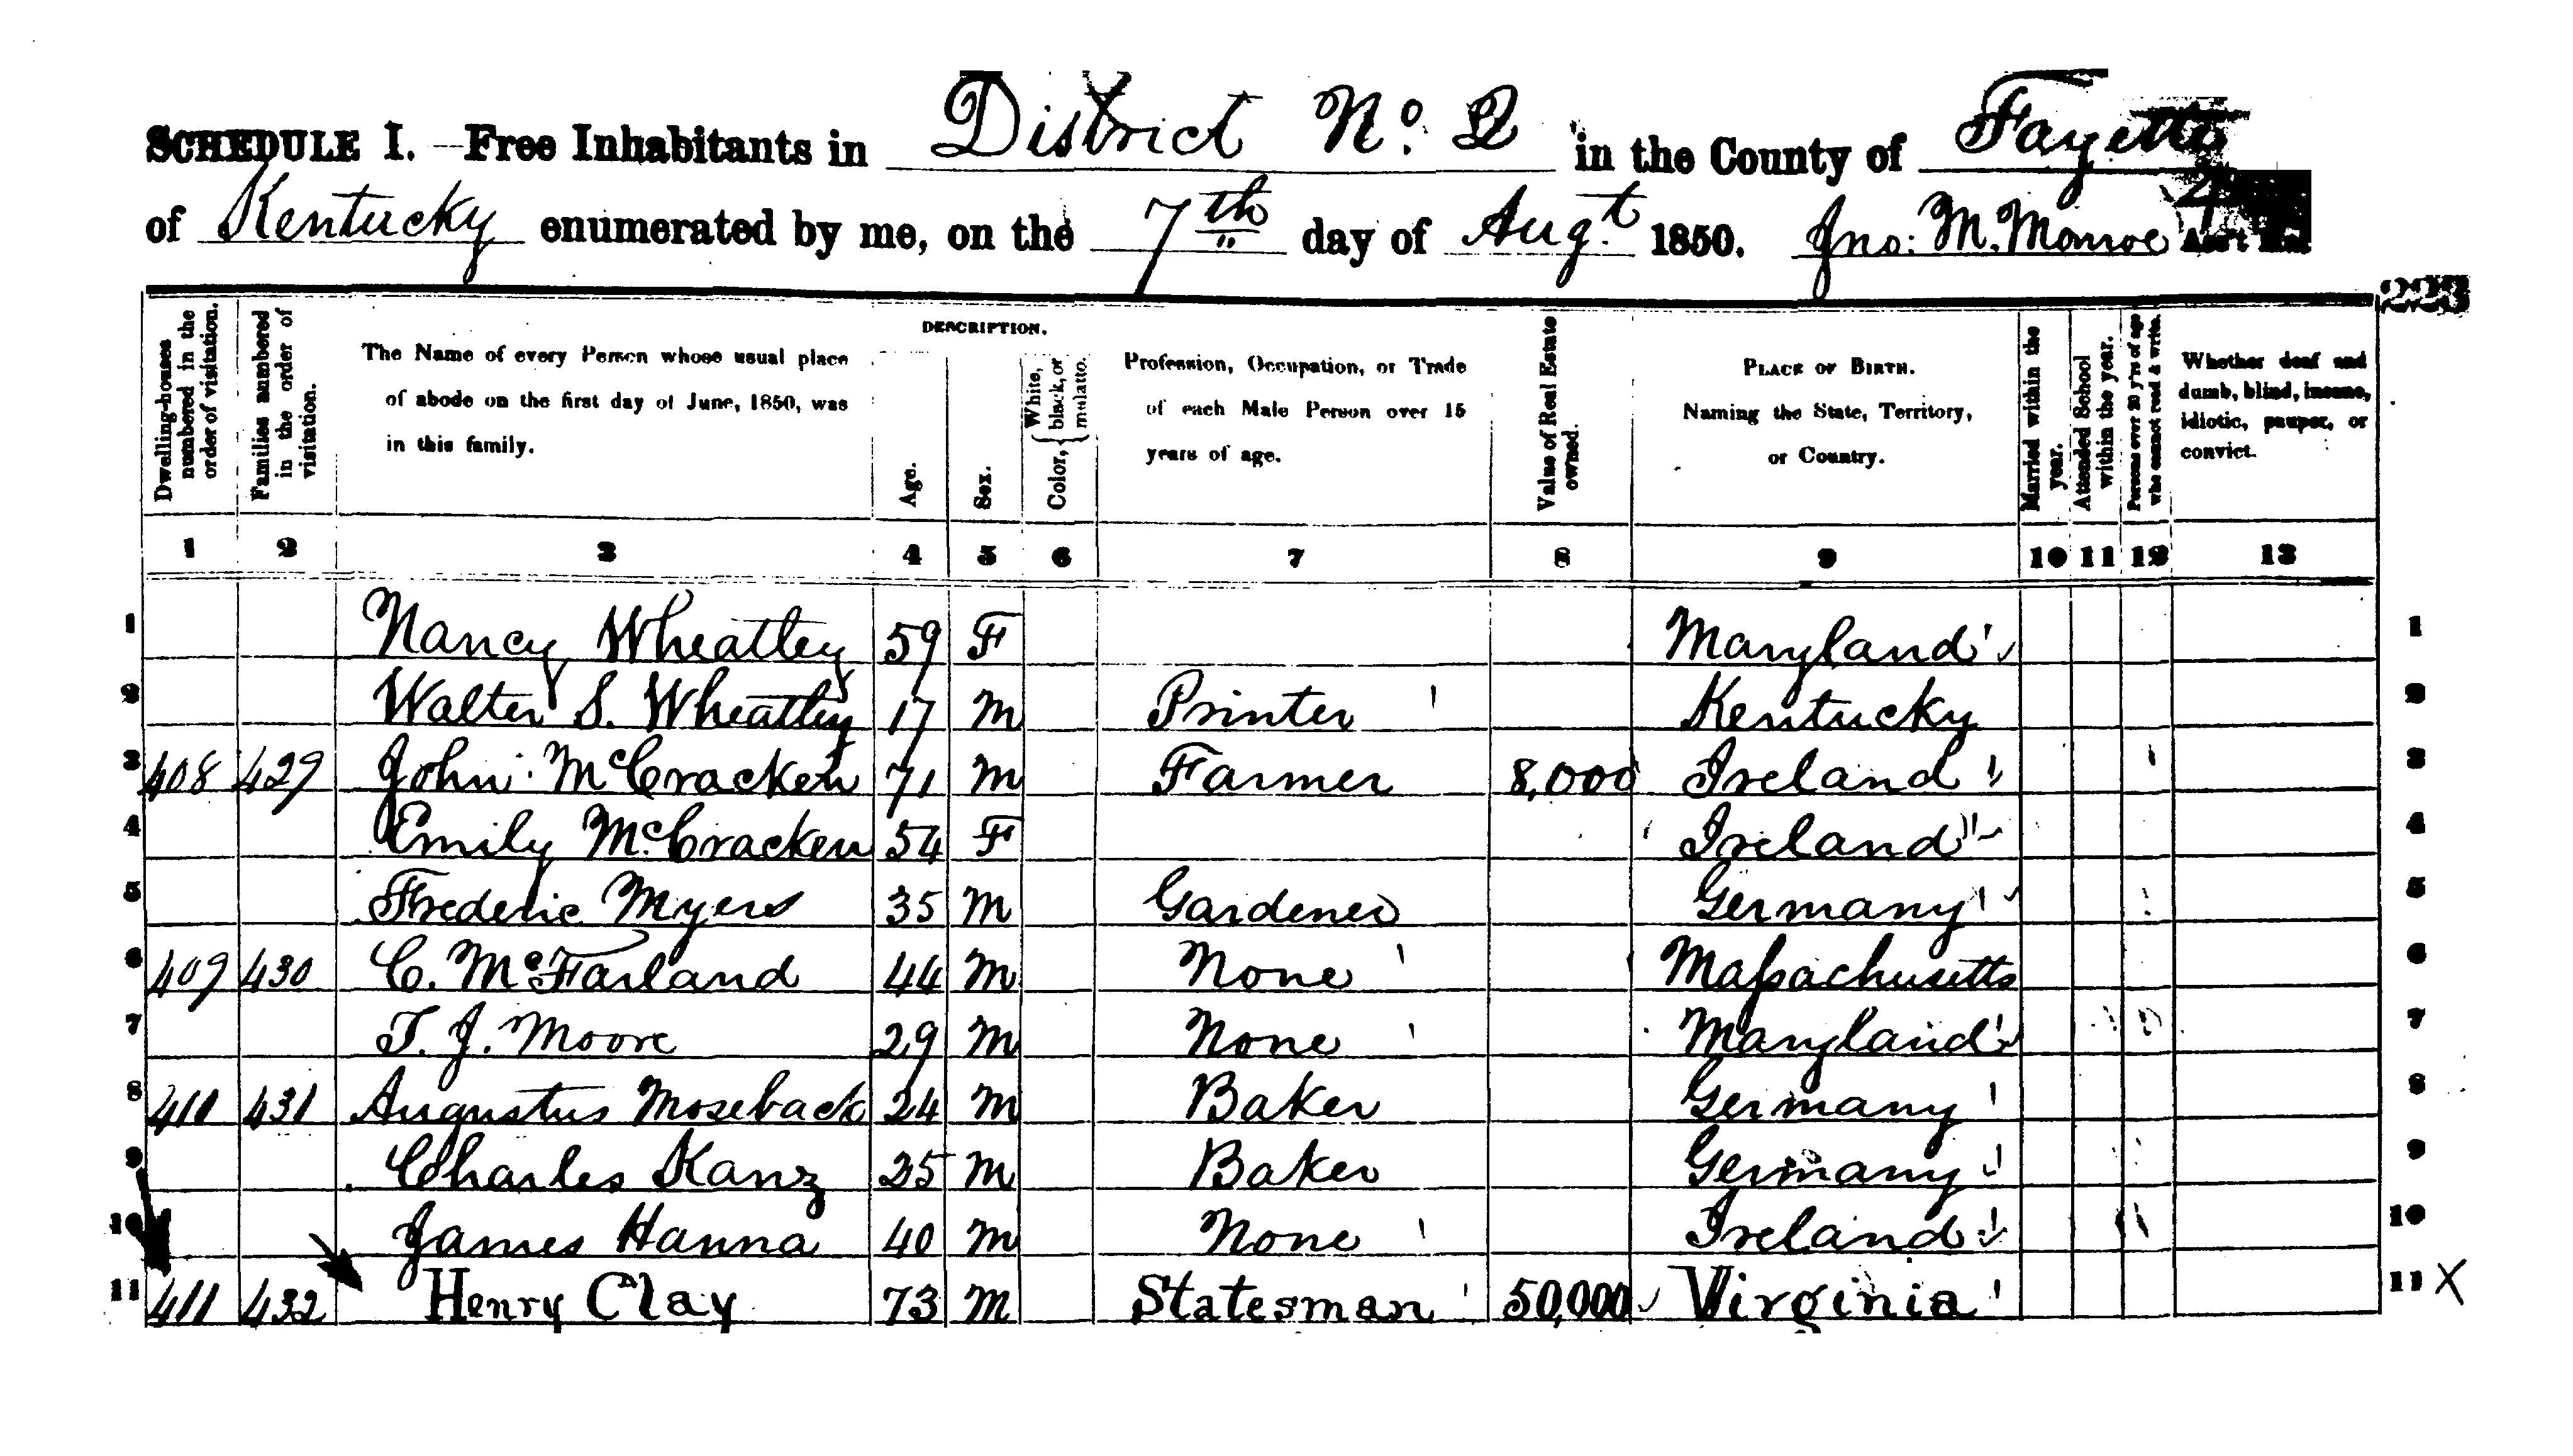 SCHEDULE I. Free Inhabitants in District No. 2 in the County of Fayette
of Kentucky enumerated by me, on the 7th day of Augt 1850. Jno: M. Monroe Ass't
223
Dwelling-houses numbered in the order of visitation.
Families numbered in the order of visitation.
The Name of every Person whose usual place
of abode on the first day of June, 1850, was
in this family.
DESCRIPTION.
Age.
Sex.
Color, { White, black, or mulatto.
Profession, Occupation, or Trade
of each Male Person over 15
years of age.
Value of Real Estate owned.
PLACE OF BIRTH.
Naming the State, Territory,
or Country.
Married within the year.
Attended School within the year.
Persons over 20 y'rs of age who cannot read & write.
Whether deaf and
dumb, blind, insane,
idiotic, pauper, or
convict.
1 2 3 4 5 6 7 8 9 10 11 12 13
1 Nancy Wheatley 59 F Maryland 1
2 Walter S. Wheatley 17 M Printer Kentucky 2
3 408 429 John McCracken 71 M Farmer 8,000 Ireland 3
4 Emily McCracken 54 F Ireland 4
5 Frederic Myers 35 M Gardener Germany 5
6 409 430 C. McFarland 44 M None Massachusetts 6
7 T. J. Moore 29 M None Maryland 7
8 411 431 Augustus Moseback 24 M Baker Germany 8
9 Charles Kanz 25 M Baker Germany 9
10 James Hanna 40 M None Ireland 10
11 411 432 Henry Clay 73 M Statesman 50,000 Virginia 11 X